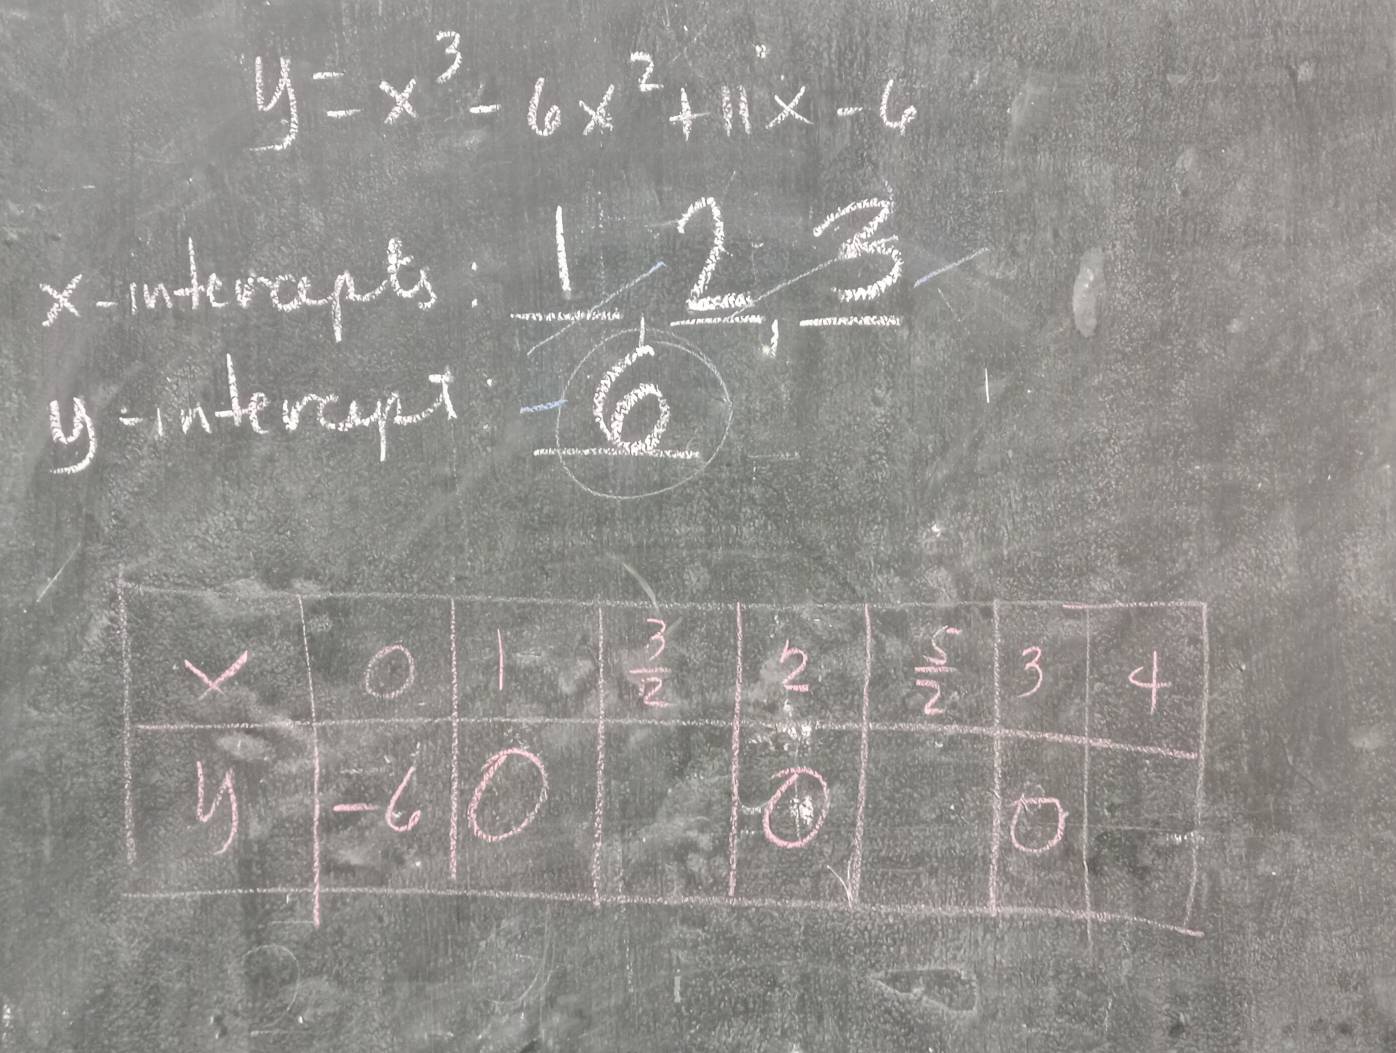 y = x³ - 6x² + 11x - 6
x-intercepts: 1, 2, 3
y-intercept: -6
x 0 1 3/2 2 5/2 3 4
y -6 0 0 0